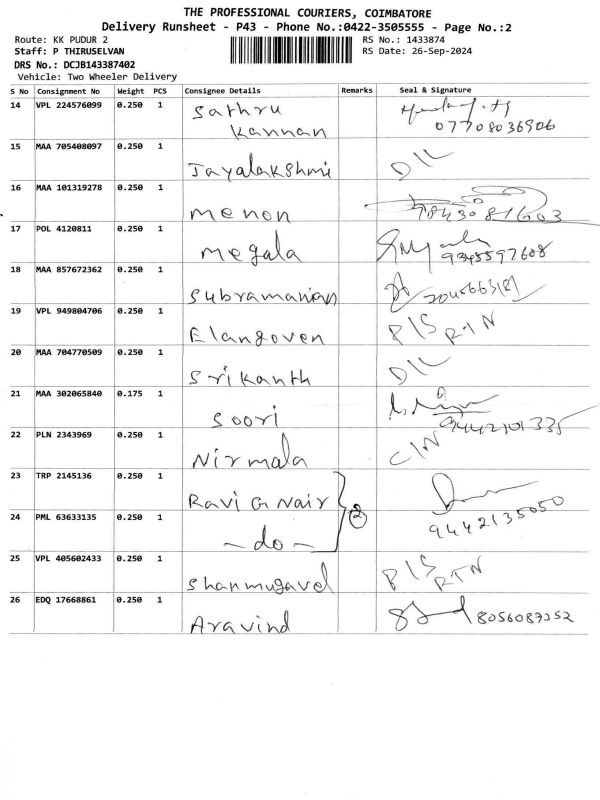 THE PROFESSIONAL COURIERS, COIMBATORE
Delivery Runsheet - P43 - Phone No.:0422-3505555 - Page No.:2
Route: KK PUDUR 2
RS No.: 1433874
Staff: P THIRUSELVAN
RS Date: 26-Sep-2024
DRS No.: DCJB143387402
Vehicle: Two Wheeler Delivery
S No Consignment No Weight PCS Consignee Details Remarks Seal & Signature
14 VPL 224576099 0.250 1 Sathru
Kannan 07708036906
15 MAA 705408097 0.250 1
Jayalakshmi D/L
16 MAA 101319278 0.250 1
Menon 9843081603
17 POL 4120811 0.250 1
Megala 9345597608
18 MAA 857672362 0.250 1
Subramanian
19 VPL 949804706 0.250 1
Elangoven P/S RTN
20 MAA 704770509 0.250 1
Srikanth D/L
21 MAA 302065840 0.175 1
Soori 9442101335
22 PLN 2343969 0.250 1
Nirmala C/N
23 TRP 2145136 0.250 1
Ravi G Nair
2
24 PML 63633135 0.250 1
-do- 9442135050
25 VPL 405602433 0.250 1
Shanmugavel P/S RTN
26 EDQ 17668861 0.250 1
Aravind 8056087352